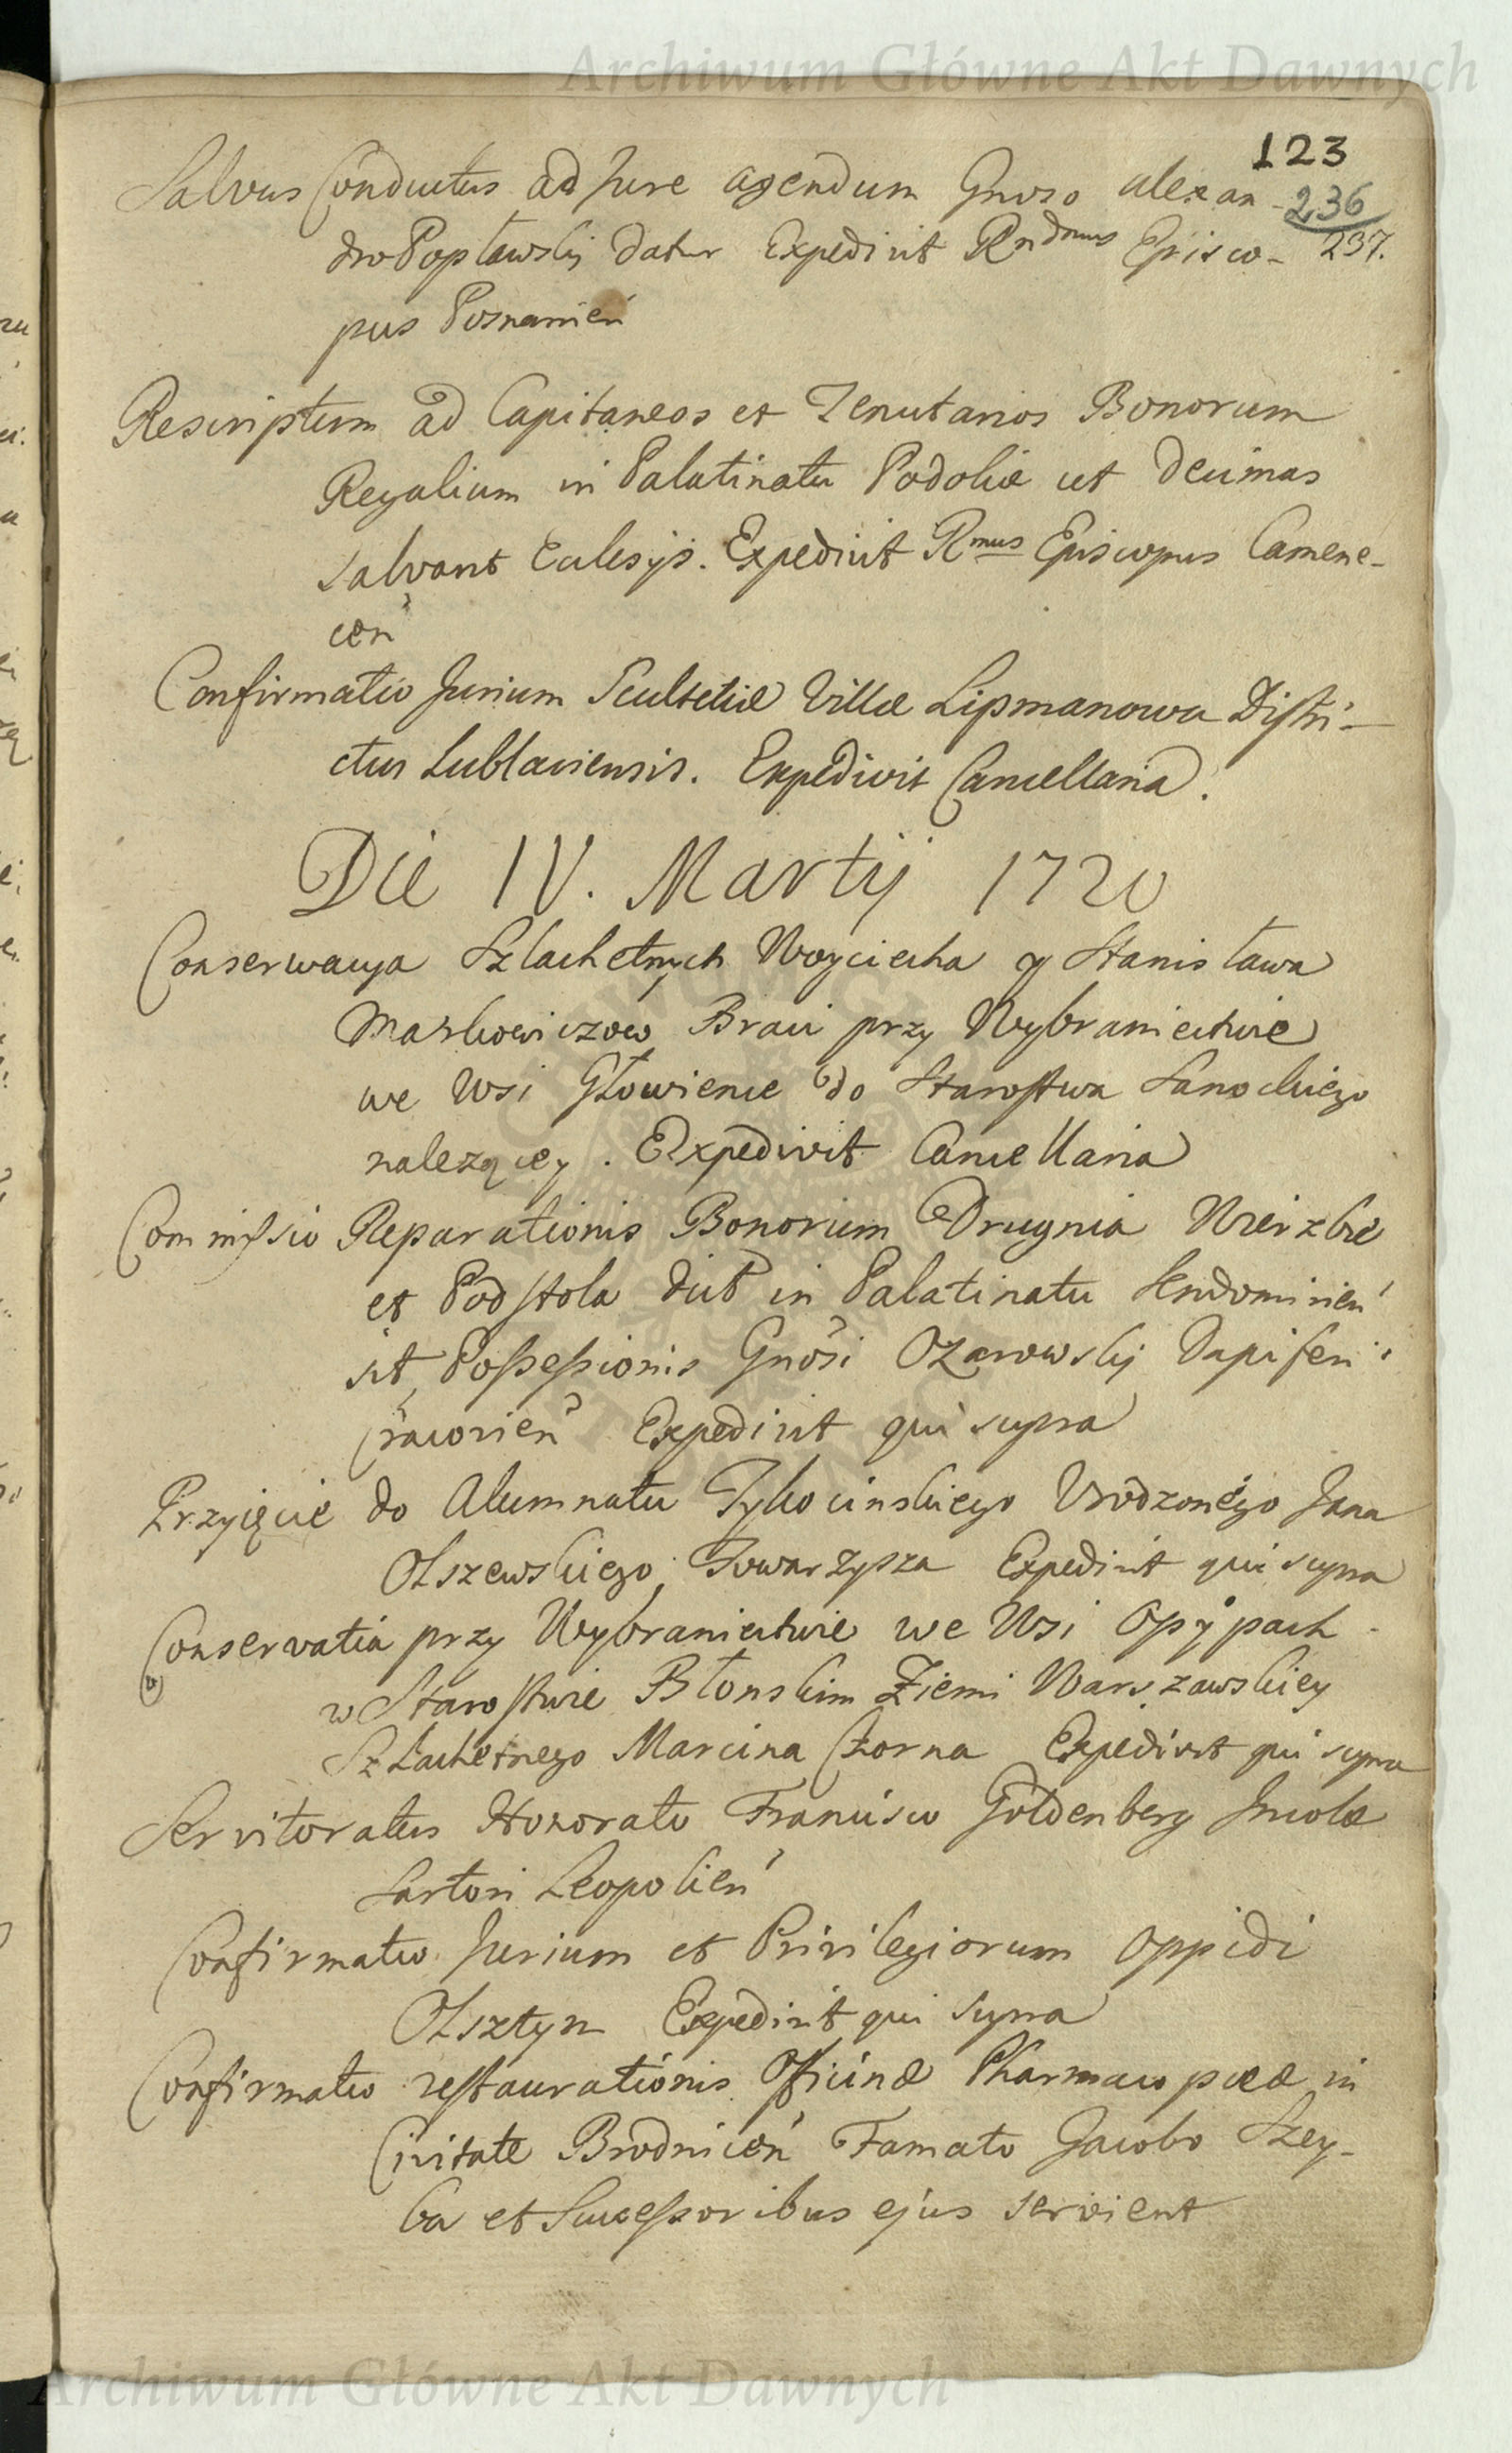 Archiwum Główne Akt Dawnych
123
Salvus Conductus ad Jure agendum Gnoso Alexan-
236
dro Popławskij datur Expedivit Rndmus Episco-
237.
pus Posnanień
Rescriptum ad Capitaneos et Tenutarios Bonorum
Regalium in Palatinatu Podoliæ ut Decimas
salvant Eclesÿs. Expedivit Rmus Episcopus Camene-
cen
Confirmatio Jurium Scultetiæ Villæ Lipmanowa Distri-
ctus Lublaviensis. Expedivit Cancellaria.
Die IV. Martij 1720
Conserwacya Szlachetnych Woyciecha y Stanisława
Maskowiczow Braci przy Wybraniectwie
we Wsi Głowience do Starostwa Sanockiego
nalezącey. Expedivit Cancellaria
Commissio Reparationis Bonorum Drugnia Wierzbie
et Podstola dict in Palatinatu Sendomirien
sit, Possessionis Gnosi Ozarowskij Dapiferi
Cracovien Expedivit qui supra
Przyięcie do Alumnatu Tykocinskiego Urodzonego Jana
Olszewskiego Towarzysza Expedivit qui supra
Conservatia przy Wybraniectwie we Wsi Opÿpach
w Starostwie Błonskim Ziemi Warszawskiey
Szlachetnego Marcina Czorna Expedivit qui supra
Servitoratus Honorato Francisco Goldenberg Incolæ
Sartori Leopolien
Confirmatio Jurium et Privilegiorum Oppidi
Olsztyn Expedivit qui supra
Confirmatio restaurationis Officinæ Pharmacopææ in
Civitate Brodnicen Famato Jacobo Szey-
ba et Successoribus ejus servient
Archiwum Główne Akt Dawnych